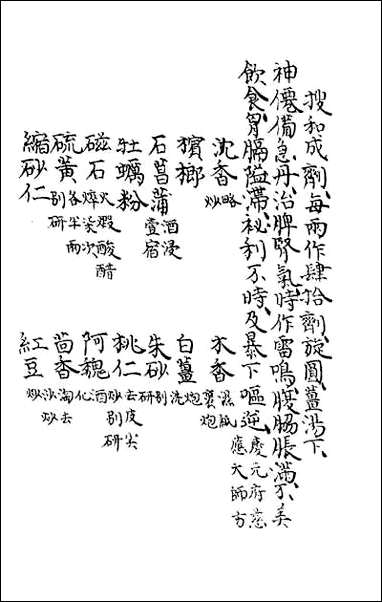 搜和成劑、每兩作肆拾劑、旋圓、薑湯下、
神僊備急丹、治脾腎氣、時作雷鳴腹脇脹滿、不美
飲食、胃膈隘滯、祕利不時、及暴下嘔逆、慶元府 應天師方
沈香略炒 木香濕紙裹炮
檳榔 白薑炮洗
石菖蒲酒浸壹宿 朱砂別研
牡蠣粉 桃仁去皮尖炒別研
磁石火煅酸醋焠柒次 阿魏酒化
硫黃各半兩別研 茴香淘去沙炒
縮砂仁 紅豆